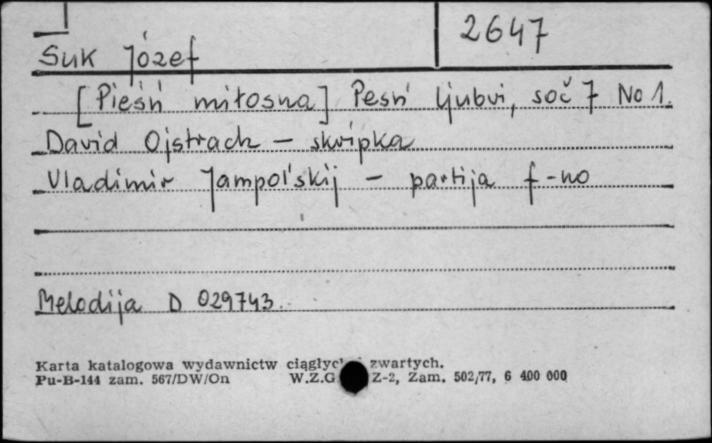 2647
Suk Józef
[Pieśń miłosna] Pesń ljubvi, soč 7 No 1.
David Ojstrach – skripka
Vladimir Jampol'skij – partija f-no
Melodija D 029743
Karta katalogowa wydawnictw ciągłych zwartych.
Pu-B-144 zam. 567/DW/On W.Z.G Z-2, Zam. 502/77, 6 400 000